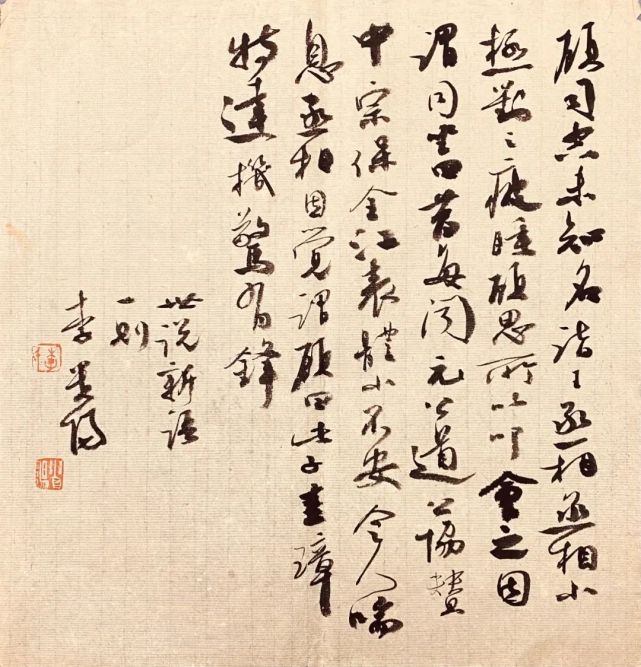 顧司空未知名詣王丞相丞相小
極對之疲睡顧思所以叩會之因
謂同坐曰昔每聞元公道公協贊
中宗保全江表體小不安令人喘
息丞相因覺謂顧曰此子圭璋
特達機警有鋒
世說新語
一則
李